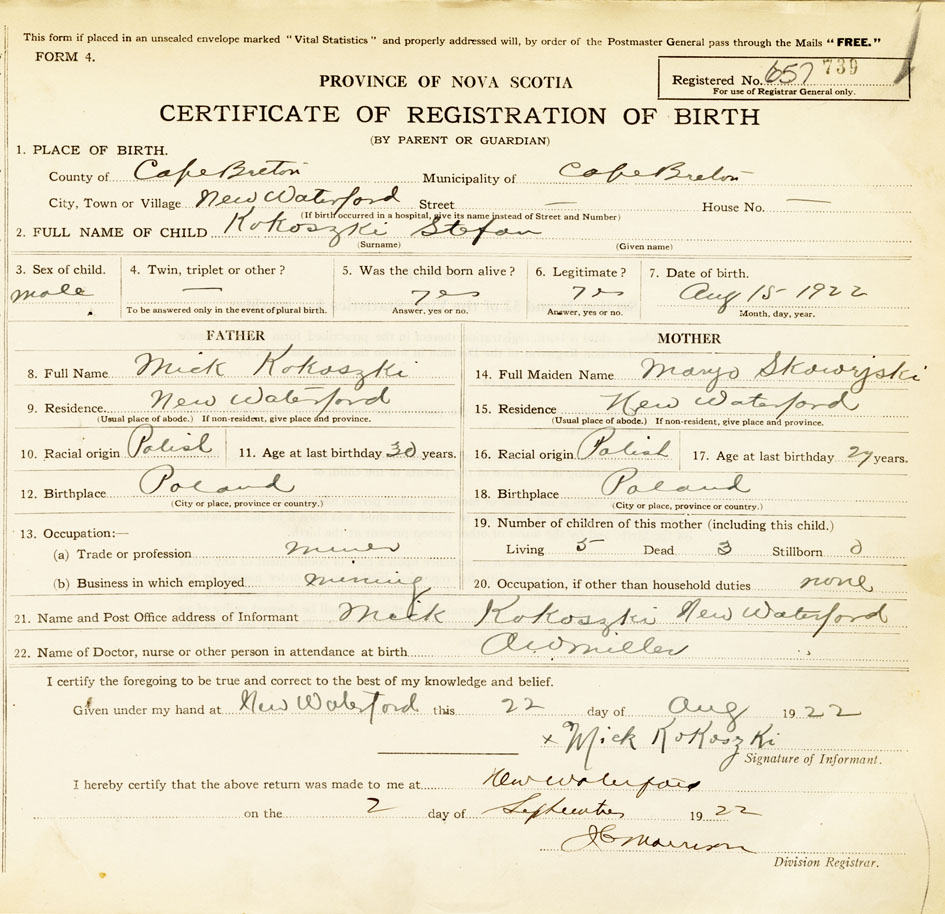 This form if placed in an unsealed envelope marked "Vital Statistics" and properly addressed will, by order of the Postmaster General pass through the Mails "FREE."
FORM 4.
PROVINCE OF NOVA SCOTIA
Registered No. 657 739
For use of Registrar General only.
CERTIFICATE OF REGISTRATION OF BIRTH
(BY PARENT OR GUARDIAN)
1. PLACE OF BIRTH.
County of Cape Breton Municipality of Cape Breton
City, Town or Village New Waterford Street — House No. —
(If birth occurred in a hospital, give its name instead of Street and Number)
2. FULL NAME OF CHILD Kokoszki Stefan
(Surname) (Given name)
3. Sex of child. 4. Twin, triplet or other? 5. Was the child born alive? 6. Legitimate? 7. Date of birth.
male — yes yes Aug 15 1922
To be answered only in the event of plural birth. Answer, yes or no. Answer, yes or no. Month, day, year.
FATHER MOTHER
8. Full Name Mick Kokoszki 14. Full Maiden Name Maryo Skowrjski
9. Residence New Waterford 15. Residence New Waterford
(Usual place of abode.) If non-resident, give place and province. (Usual place of abode.) If non-resident, give place and province.
10. Racial origin Polish 11. Age at last birthday 30 years. 16. Racial origin Polish 17. Age at last birthday years.
12. Birthplace Poland 18. Birthplace Poland
(City or place, province or country.) (City or place, province or country.)
13. Occupation:— 19. Number of children of this mother (including this child.)
(a) Trade or profession miner Living 5 Dead 3 Stillborn 0
(b) Business in which employed mining 20. Occupation, if other than household duties none
21. Name and Post Office address of Informant Mick Kokoszki New Waterford
22. Name of Doctor, nurse or other person in attendance at birth Miller
I certify the foregoing to be true and correct to the best of my knowledge and belief.
Given under my hand at New Waterford this 22 day of Aug 1922
x Mick Kokoszki
Signature of Informant.
I hereby certify that the above return was made to me at New Waterford
on the 2 day of September 1922
Morrison
Division Registrar.